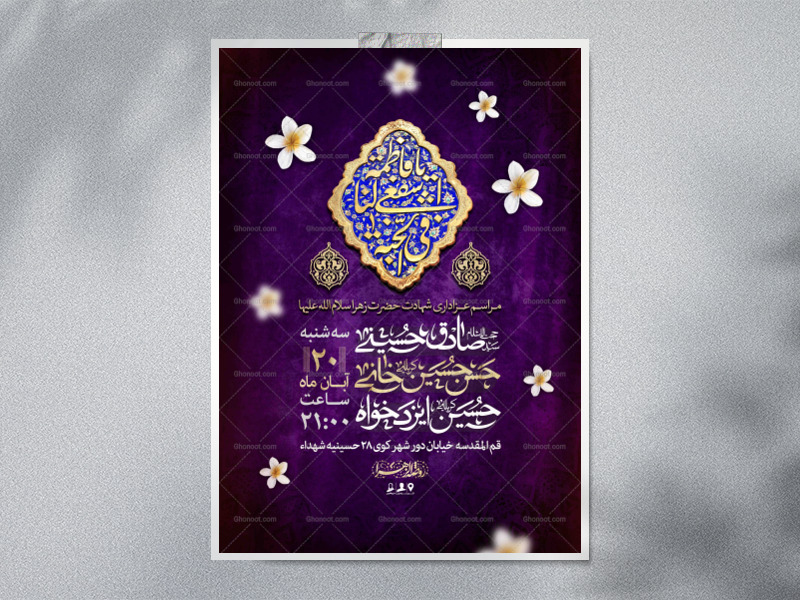 یا فاطمة
اشفعی لنا
فی الجنة
مراسم عزاداری شهادت حضرت زهرا سلام الله علیها
صادق حسینی
حسن حسین خانی
کربلایی حسین ایزدخواه
سه شنبه
۲۰
آبان ماه
ساعت
۲۱:۰۰
قم المقدسه خیابان دور شهر کوی ۲۸ حسینیه شهداء
Ghonoot.com